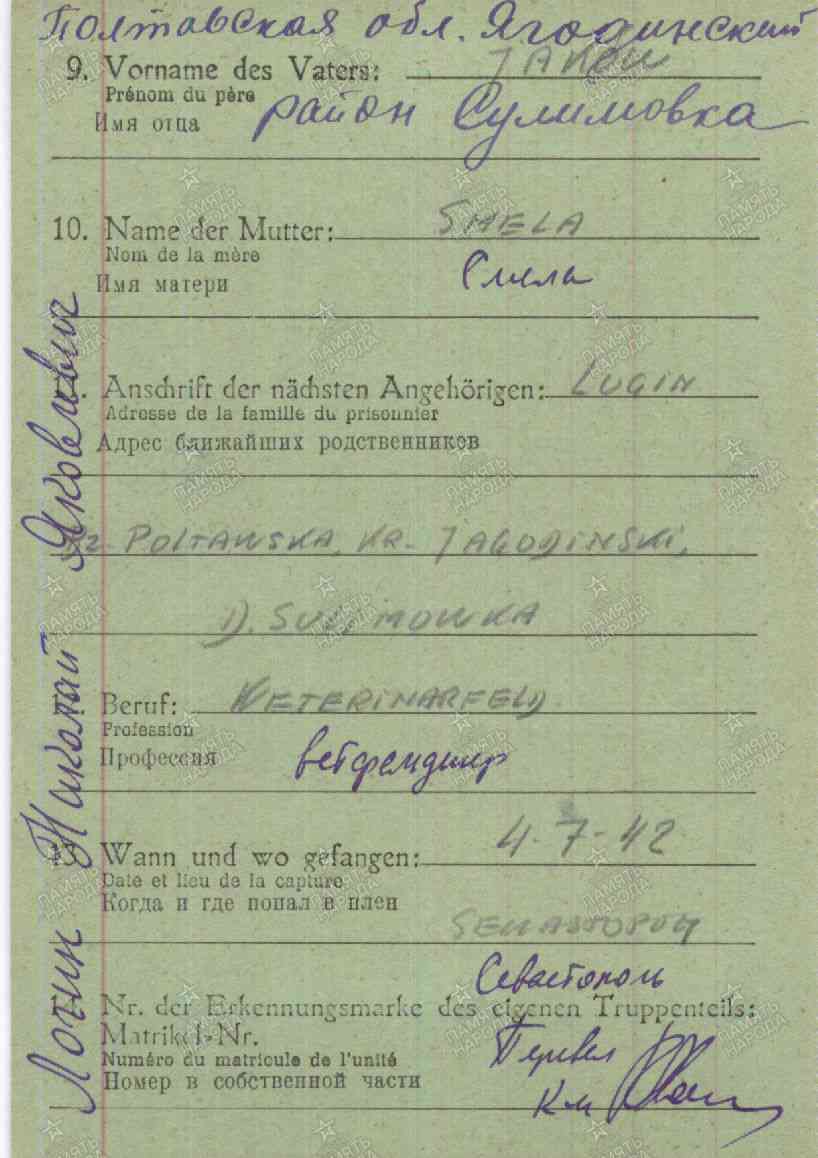 Полтавская обл. Ягодинский
9. Vorname des Vaters: JAKOW
Prénom du père
Имя отца
район Сулимовка
10. Name der Mutter: SMELA
Nom de la mère
Имя матери
Смела
Anschrift der nächsten Angehörigen: LUGIN
Adresse de la famille du prisonnier
Адрес ближайших родственников
POLTAWSKA, KR. JAGODINSKI,
D. SULIMOWKA
Beruf: WETERINARFELD
Profession
Профессия
ветфельдшер
13. Wann und wo gefangen: 4-7-42
Date et lieu de la capture
Когда и где попал в плен
SEWASTOPOL
Севастополь
Nr. der Erkennungsmarke des eigenen Truppenteils:
Matrikel-Nr.
Numéro du matricule de l'unité
Номер в собственной части
Перевел
Логин Николай Яковлевич
ПАМЯТЬ НАРОДА